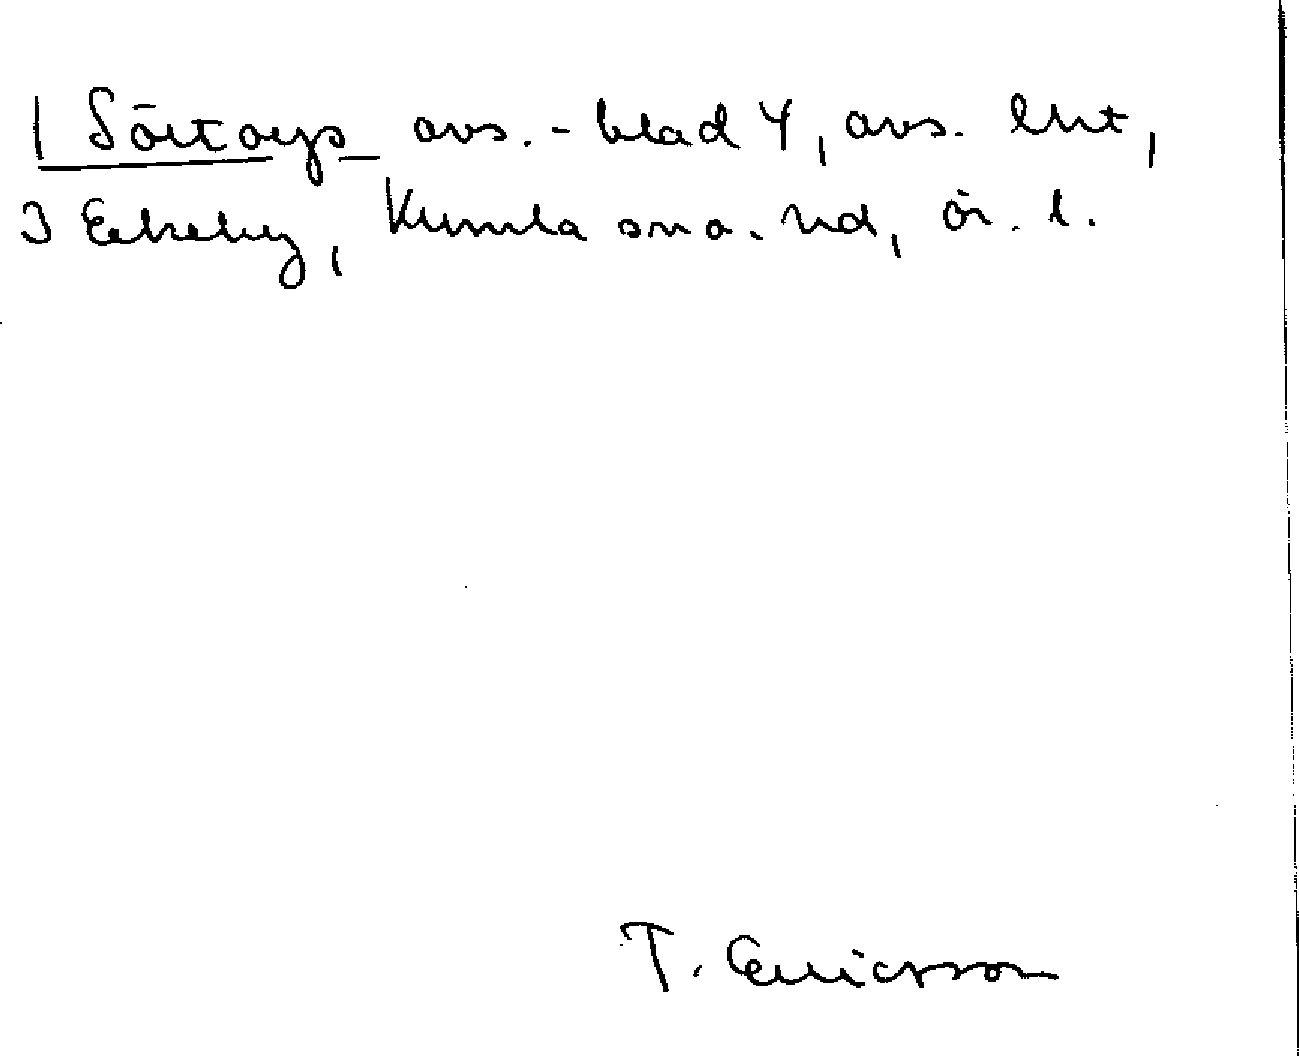 1 Sörtorp avs. - blad 4, avs. lht,
3 Ekeby, Kumla sna. hd, ör. l.
T. Ericsson